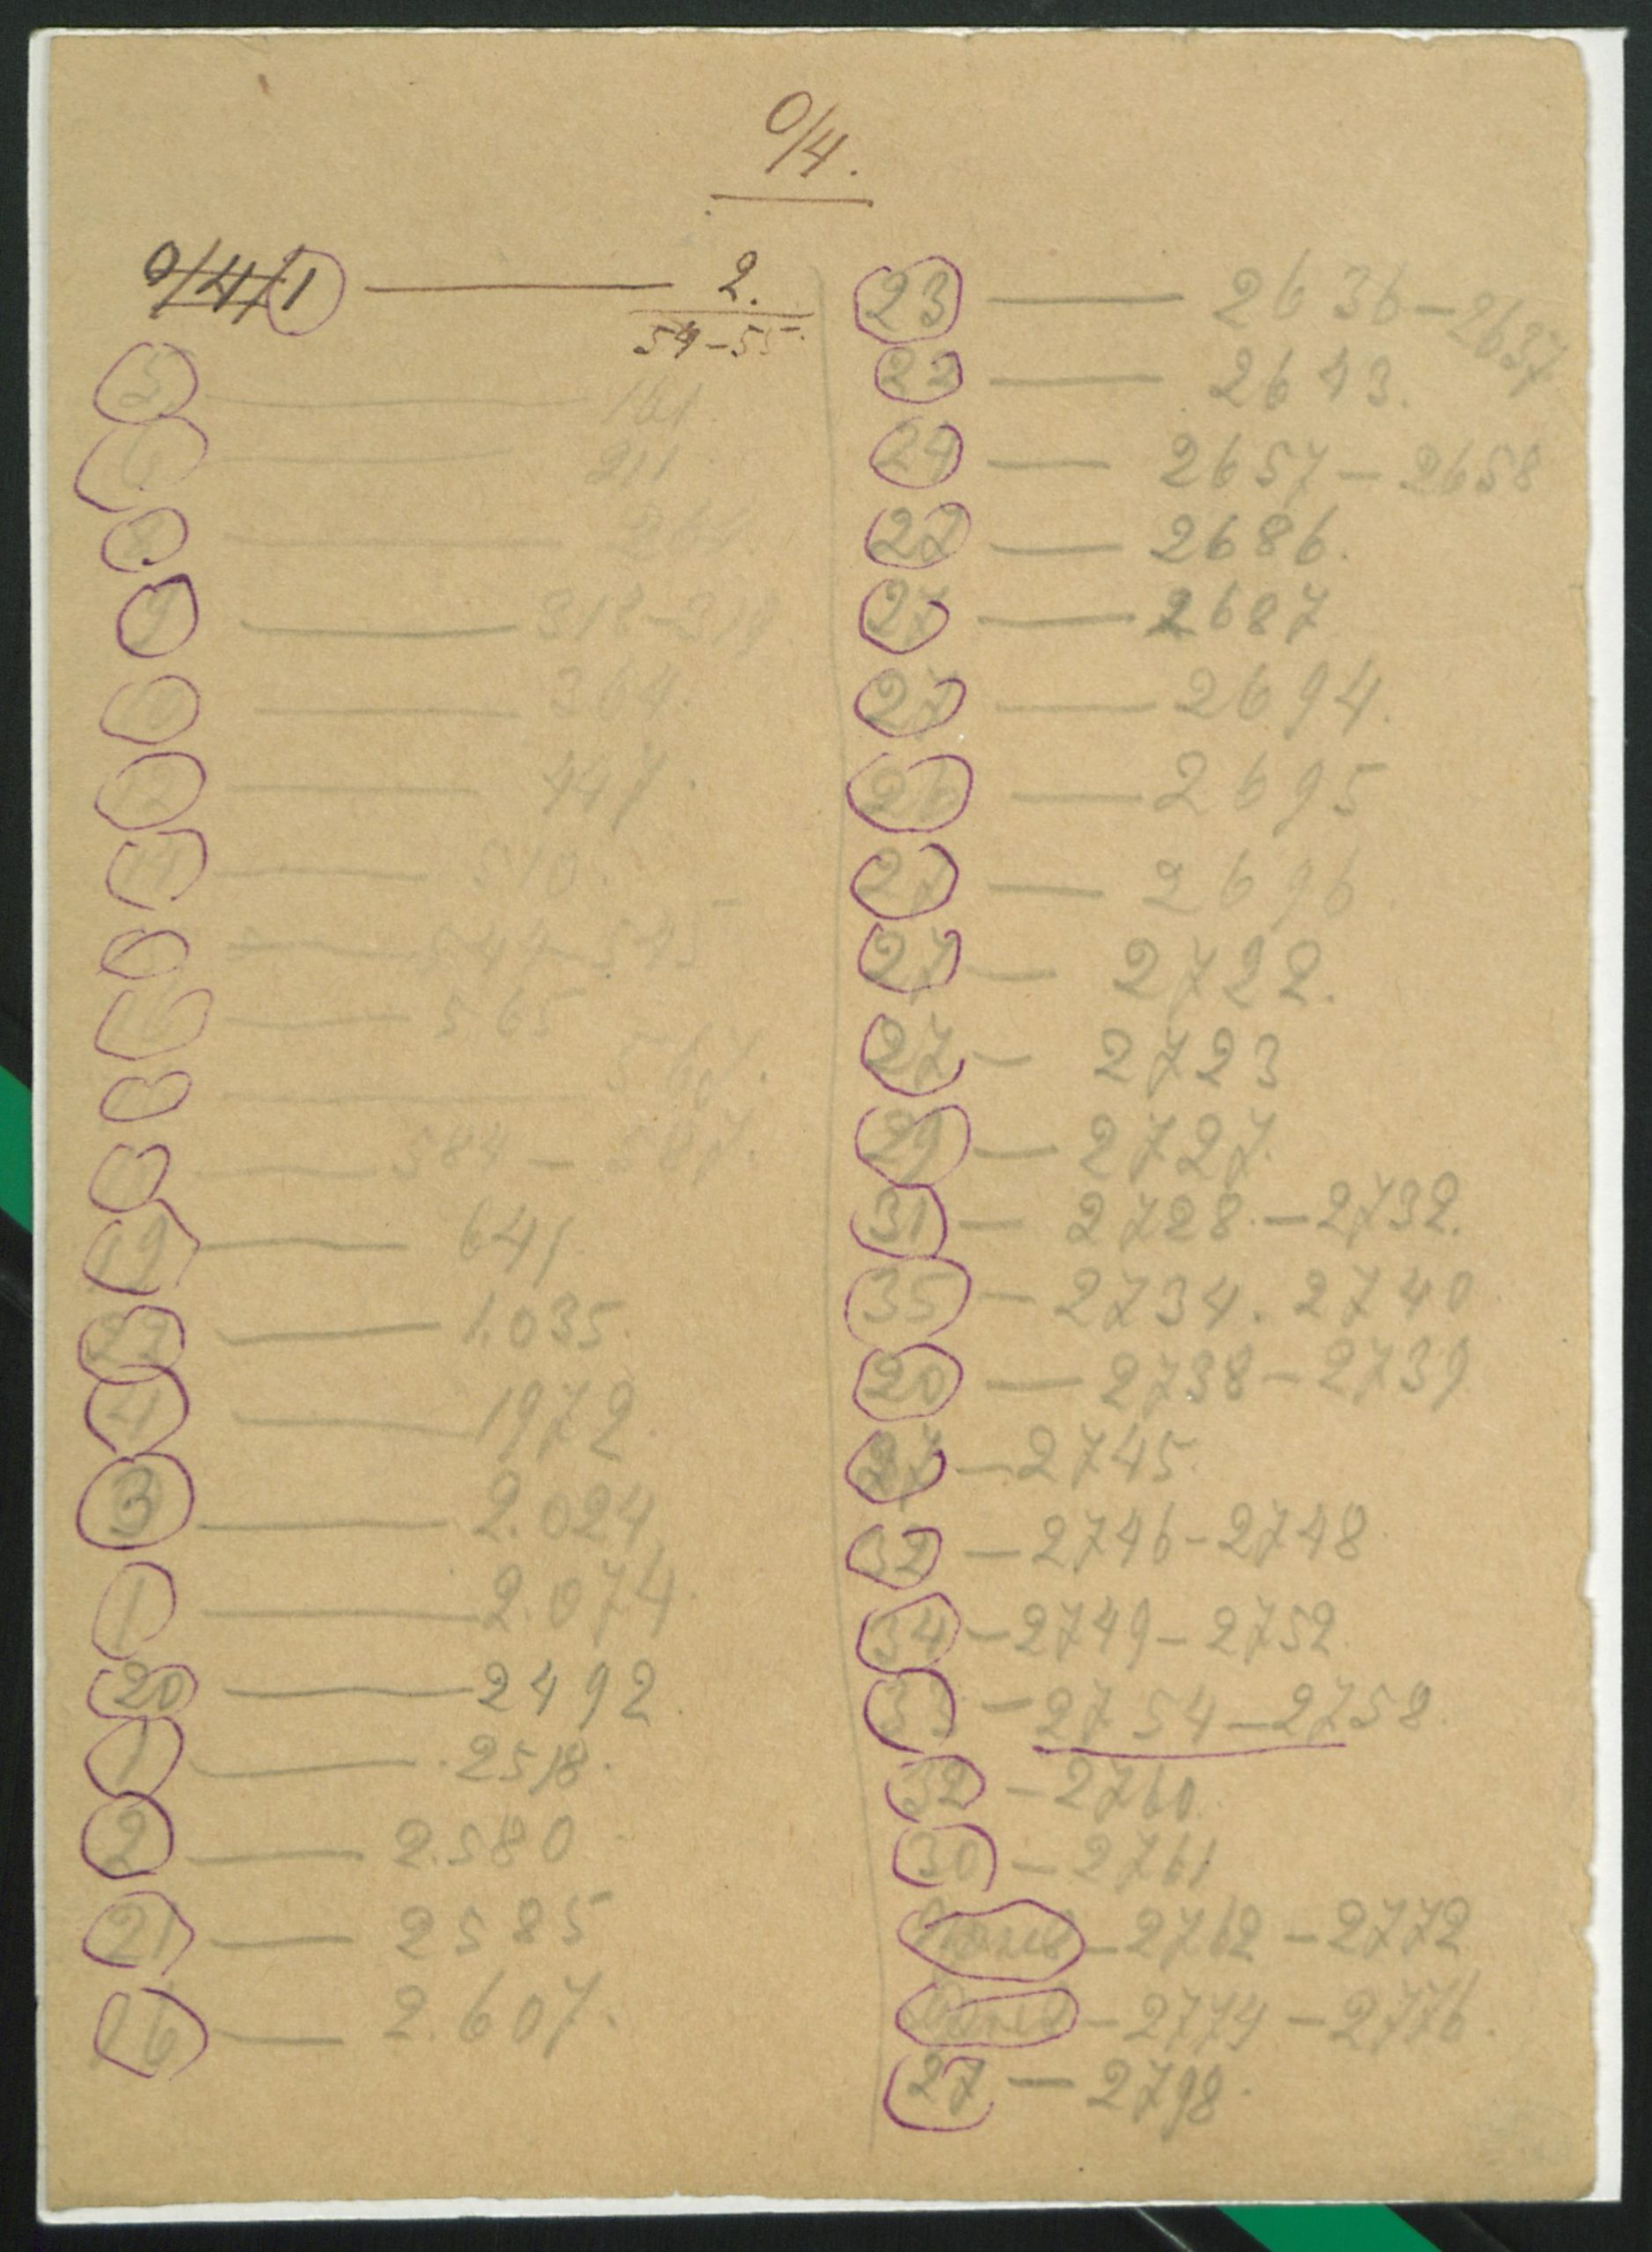 0/4.
0/4/1 — 2.
54-55.
5 — 161.
6 — 211.
8 — 264.
9 — 318-319
10 — 364.
12 — 447.
11 — 540.
— 544-545
16 — 565
— 567.
— 584 — 587.
19 — 641
22 — 1.035.
4 — 1972.
3 — 2.024
1 — 2.074.
20 — 2492.
1 — 2518.
2 — 2.580.
21 — 2585
26 — 2.607.
23 — 2636-2637
22 — 2643.
24 — 2657-2658
27 — 2686.
27 — 2687
27 — 2694.
26 — 2695
27 — 2696.
27 — 2722.
27 — 2723
29 — 2727.
31 — 2728.-2732.
35 — 2734. 2740
20 — 2738-2739
27 — 2745.
32 — 2746-2748
34 — 2749-2752.
33 — 2754-2758.
32 — 2760.
30 — 2761
— 2762-2772
— 2774-2776.
27 — 2798.